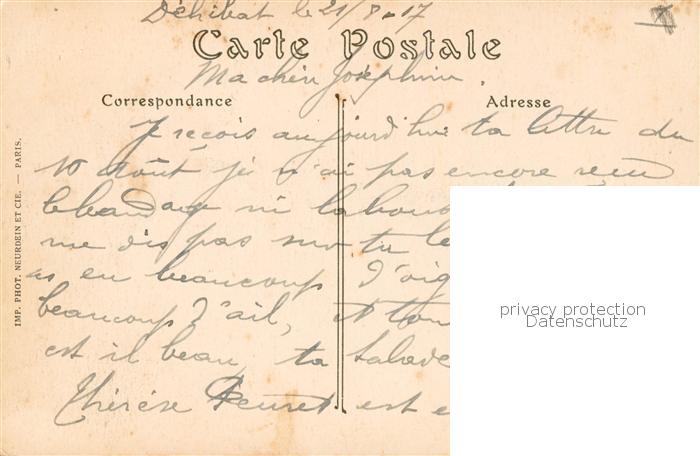 Déhibat le 21/8-17
Carte Postale
Ma chère Joséphine.
Correspondance
Adresse
Je reçois aujourd'hui ta lettre du
10 août je n'ai pas encore reçu
le bandage ni la
me dis pas tu le
as eu beaucoup d'oig
beaucoup d'ail, et ton
est il beau, ta salade
Thérèse est e
IMP. PHOT. NEURDEIN ET CIE. — PARIS.
privacy protection
Datenschutz